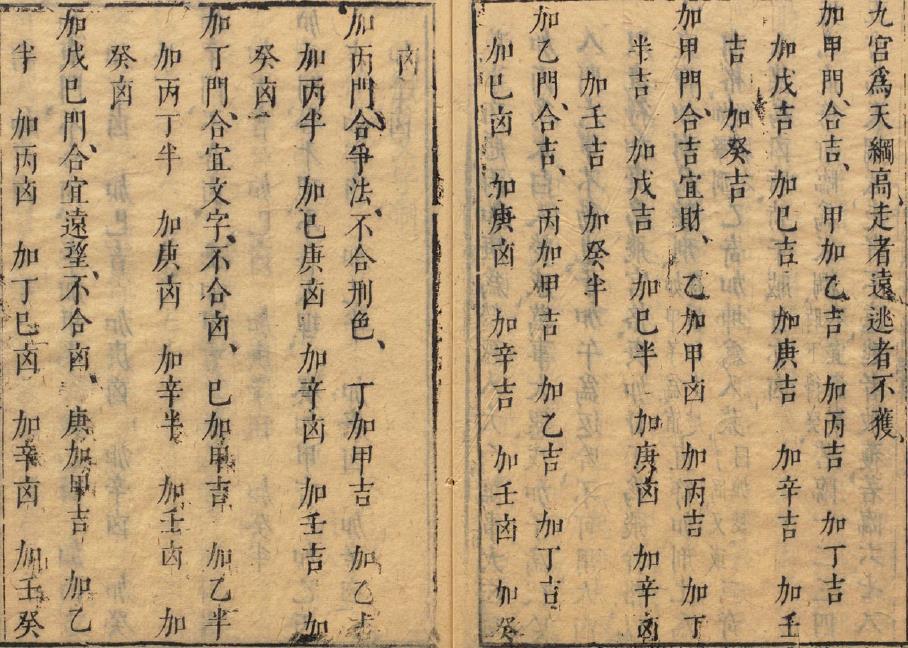 九宮爲天綱高、走者遠逃者不獲、
加甲門、合吉、甲加乙吉 加丙吉 加丁吉
加戊吉 加巳吉 加庚吉 加辛吉 加壬
吉 加癸吉
加甲門、合吉宜財、乙加甲㐫 加丙吉 加丁
半吉 加戊吉 加巳半 加庚㐫 加辛㐫
加壬吉 加癸半
加乙門、合吉、丙加甲吉 加乙吉 加丁吉
加巳㐫 加庚㐫 加辛吉 加壬㐫 加癸
㐫
加丙門、合爭法、不合刑色、丁加甲吉 加乙吉
加丙半 加巳庚㐫 加辛㐫 加壬吉 加
癸㐫
加丁門、合宜文字、不合㐫、巳加甲吉 加乙半
加丙丁半 加庚㐫 加辛半 加壬㐫 加
癸㐫
加戊巳門、合宜遠望、不合㐫、庚加甲吉 加乙
半 加丙㐫 加丁巳㐫 加辛㐫 加壬癸